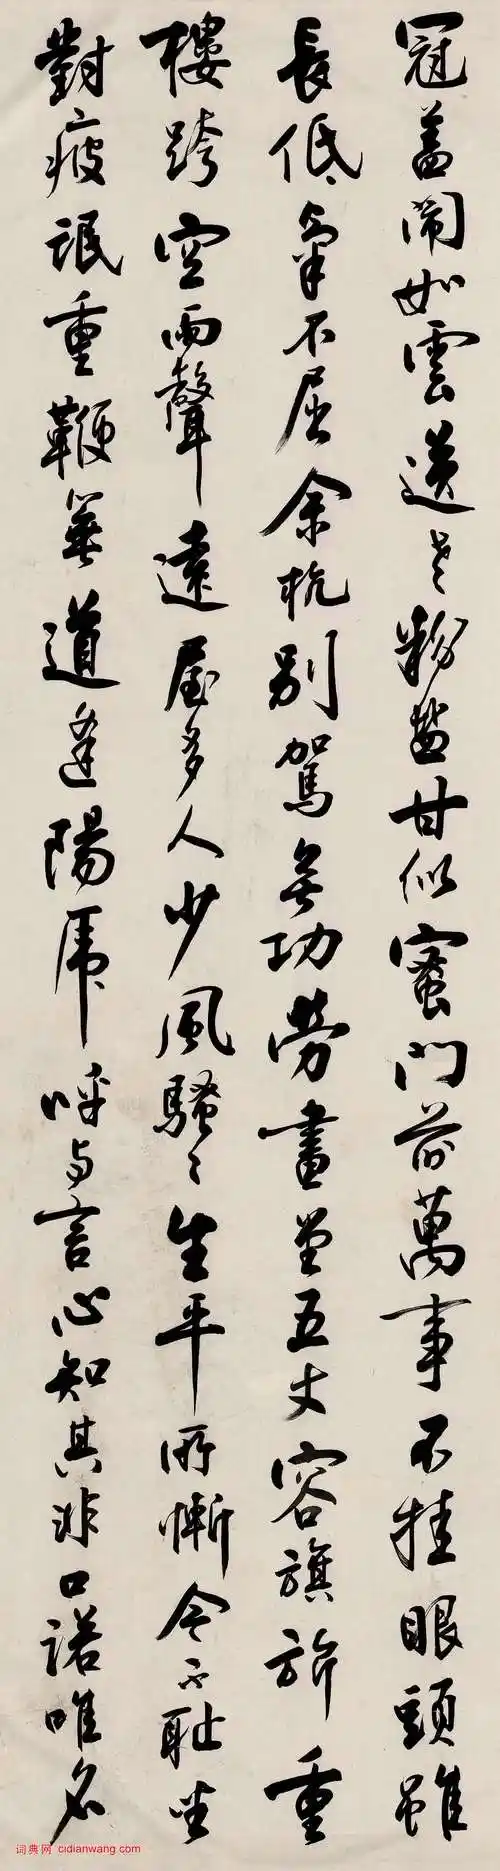 冠盖闹如雲送老粉盐甘似蜜門前萬事不挂眼頭雖
長低氣不屈余杭别駕無功勞畫堂五丈容旗旂重
樓跨空雨聲遠屋多人少風騷々生平所慚今不耻坐
對疲氓重鞭箠道逢陽虎呼与言心知其非口諾唯名
词典网 cidianwang.com